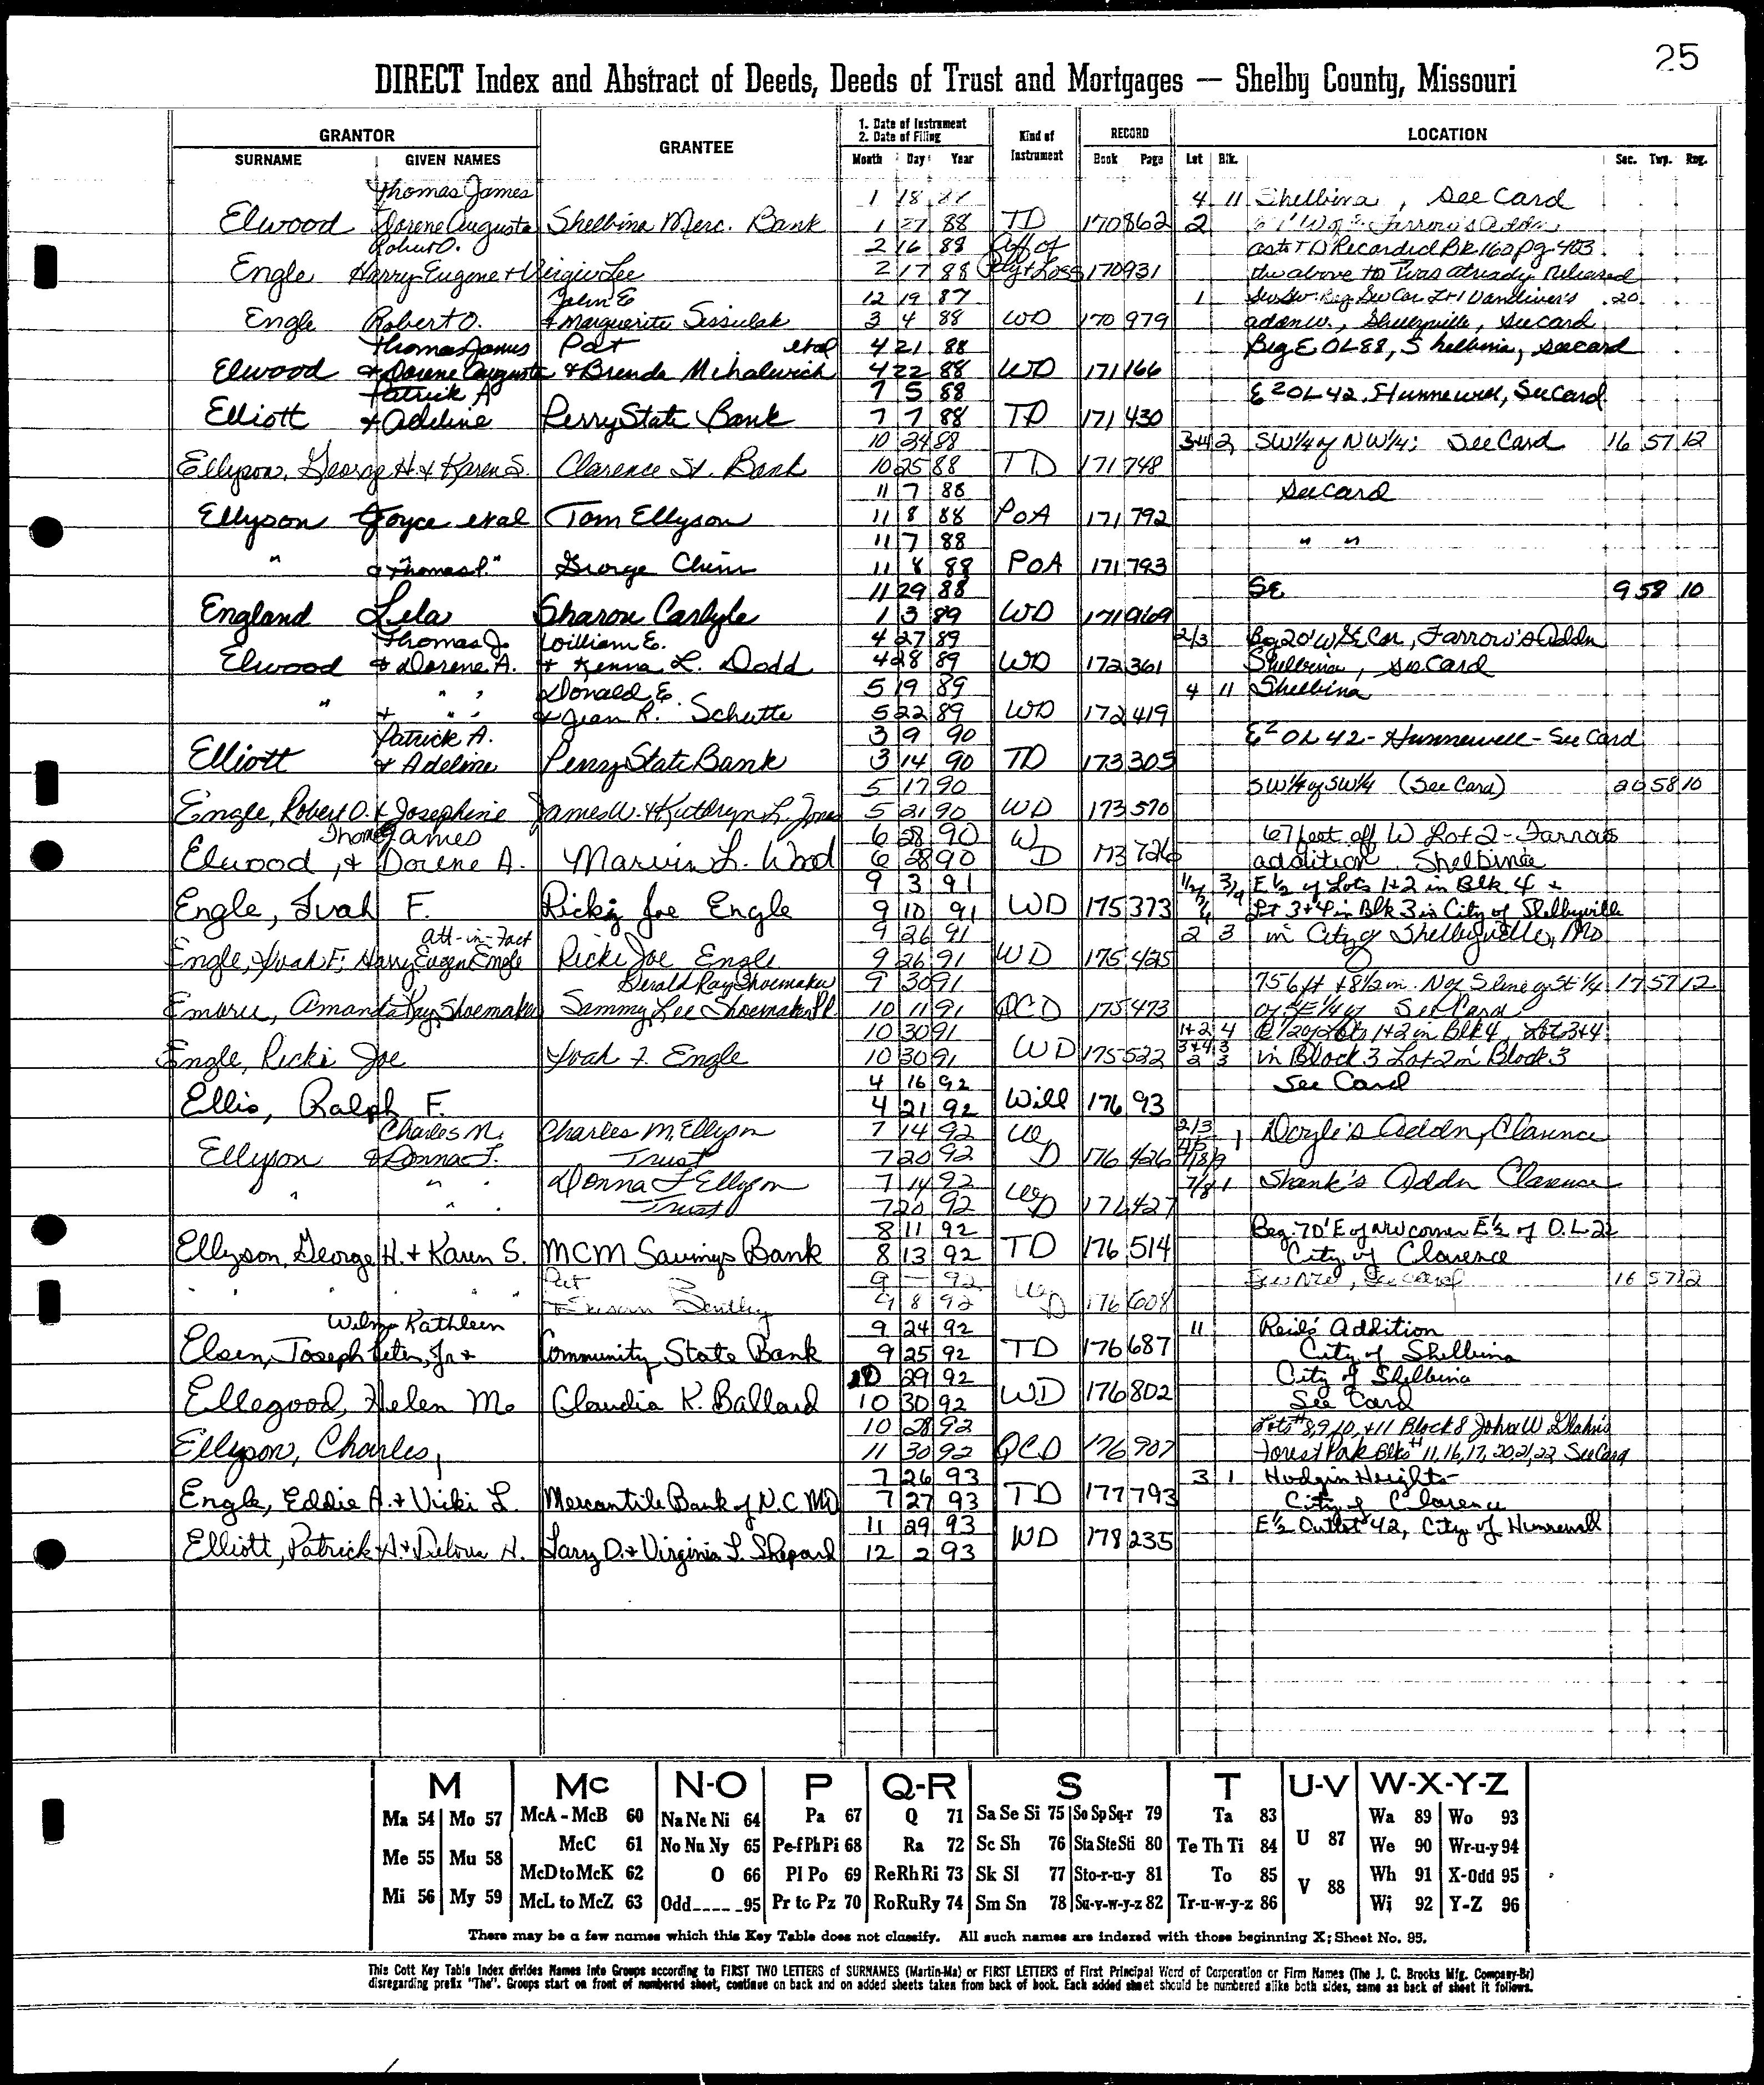 25
DIRECT Index and Abstract of Deeds, Deeds of Trust and Mortgages — Shelby County, Missouri
GRANTOR GRANTEE 1. Date of Instrument 2. Date of Filing Kind of Instrument RECORD LOCATION
SURNAME GIVEN NAMES Month Day Year Book Page Lot Blk. Sec. Twp. Rng.
Thomas James 1 18 4 11 Shelbina, See Card
Elwood Dorene Augusta Shelbina Merc. Bank 1 27 88 TD 170 862 2 Farrow's Addn
Robert O. 2 16 88 Aff of as to TD Recorded Bk 162 pg 403
Engle Harry Eugene + Virgie Lee 2 17 88 170 931 the above TD was already Released
John E 12 19 87 1 Vandiver's 20
Engle Robert O. + Marguerite Sissulak 3 4 88 WD 170 979 addn W., Shelbyville, see card
Thomas James Pat etal 4 21 88 Beg E OL 88, Shelbina, see card
Elwood & Dorene Auguste & Brenda Mihalevich 4 22 88 WD 171 166
Patrick A 7 5 88 E 2 OL 42, Hunnewell, See Card
Elliott & Adeline Perry State Bank 7 7 88 TD 171 430
10 24 88 3+4 2 SW 1/4 of NW 1/4; See Card 16 57 12
Ellyson, George H. & Karen S. Clarence St. Bank 10 25 88 TD 171 748
11 7 88 See Card
Ellyson Joyce etal Tom Ellyson 11 8 88 POA 171 792
11 7 88 " "
" & Thomas P. " George Chinn 11 8 88 POA 171 793
11 29 88 SE 9 58 10
England Lela Sharon Carlyle 1 3 89 WD 171 969
Thomas J. William E. 4 27 89 2/3 Beg 20' W SE Cor, Farrow's Addn
Elwood & Dorene A. + Kenna L. Dodd 4 28 89 WD 172 361 Shelbina, see Card
" " Donald E. 5 19 89 4 11 Shelbina
" + " " & Jean R. Schutte 5 22 89 WD 172 419
Patrick A. 3 9 90 E 2 OL 42 - Hunnewell - See Card
Elliott & Adeline Perry State Bank 3 14 90 TD 173 305
5 17 90 SW 1/4 of SW 1/4 (See Card) 20 58 10
Engle, Robert O. & Josephine James W. & Kathryn L. Jones 5 21 90 WD 173 570
Thomas James 6 28 90 67 feet off W Lot 2 - Farrows
Elwood, & Dorene A. Marvin L. Wood 6 28 90 WD 173 726 addition Shelbina
9 3 91 1/2 3/4 E 1/2 of Lots 1+2 in Blk 4 +
Engle, Ivah F. Ricky Joe Engle 9 10 91 WD 175 373 Lt 3+4 in Blk 3 in City of Shelbyville
Att-in-Fact 9 26 91 2 3 in City of Shelbyville, Mo
Engle, Ivah F; Harry Eugen Engle Ricki Joe Engle 9 26 91 WD 175 425
Gerald Ray Shoemaker 9 30 91 756 ft + 8 1/2 in. N of S line of SE 1/4 17 57 12
Amanda Kay Shoemaker Sammy Lee Shoemaker 10 11 91 QCD 175 473 of SE 1/4 of See Card
10 30 91 1+2 4 E 1/2 of Lots 1+2 in Blk 4, Lots 3+4
Engle, Ricki Joe Ivah F. Engle 10 30 91 WD 175 522 3+4 3 2 3 in Block 3 Lot 2 in Block 3
4 16 92 See Card
Ellis, Ralph F. 4 21 92 Will 176 93
Charles M. Charles M. Ellyson 7 14 92 2/3 4/5 1 Doyle's Addn, Clarence
Ellyson & Donna F. Trust 7 20 92 WD 176 426 7/8/9
" " " Donna F Ellyson 7 14 92 7/8 1 Shank's Addn Clarence
" " Trust 7 20 92 WD 176 427
8 11 92 Beg. 70' E of NW corner E 1/2 of O.L 22
Ellyson, George H. & Karen S. MCM Savings Bank 8 13 92 TD 176 514 City of Clarence
" " " " Pat 9 — 92 See card 16 57 12
+ Susan Bentley 9 8 92 WD 176 608
Wilma Kathleen 9 24 92 11 Reid's Addition
Elsen, Joseph Peter, Jr & Community State Bank 9 25 92 TD 176 687 City of Shelbina
10 29 92 City of Shelbina
Ellegood, Helen M. Claudia K. Ballard 10 30 92 WD 176 802 See Card
10 28 92 Lots # 8,9,10, +11 Block 8 John W Glahn's
Ellyson, Charles, 11 30 92 QCD 176 907 Forest Park Blks # 11,16,17,20,21,22 See Card
7 26 93 3 1 Hodgin Heights -
Engle, Eddie A. & Vicki L. Mercantile Bank of N.C MO 7 27 93 TD 177 793 City of Clarence
11 29 93 E 1/2 Outlot 42, City of Hunnewell
Elliott, Patrick A. & N. Gary D. & Virginia L. Shepard 12 2 93 WD 178 235
M Mc N-O P Q-R S T U-V W-X-Y-Z
Ma 54 Mo 57 McA - McB 60 Na Ne Ni 64 Pa 67 Q 71 Sa Se Si 75 So Sp Sq-r 79 Ta 83 U 87 Wa 89 Wo 93
Me 55 Mu 58 McC 61 No Nu Ny 65 Pe-f Ph Pi 68 Ra 72 Sc Sh 76 Sta Ste Sti 80 Te Th Ti 84 V 88 We 90 Wr-u-y 94
McD to McK 62 O 66 Pl Po 69 Re Rh Ri 73 Sk Sl 77 Sto-r-u-y 81 To 85 Wh 91 X-Odd 95
Mi 56 My 59 McL to McZ 63 Odd____95 Pr to Pz 70 Ro Ru Ry 74 Sm Sn 78 Su-v-w-y-z 82 Tr-u-w-y-z 86 Wi 92 Y-Z 96
There may be a few names which this Key Table does not classify. All such names are indexed with those beginning X; Sheet No. 95.
This Cott Key Table Index divides Names into Groups according to FIRST TWO LETTERS of SURNAMES (Martin-Ma) or FIRST LETTERS of First Principal Word of Corporation or Firm Names (The J. C. Brooks Mfg. Company-Br)
disregarding prefix "The". Groups start on front of numbered sheet, continue on back and on added sheets taken from back of book. Each added sheet should be numbered alike both sides, same as back of sheet it follows.